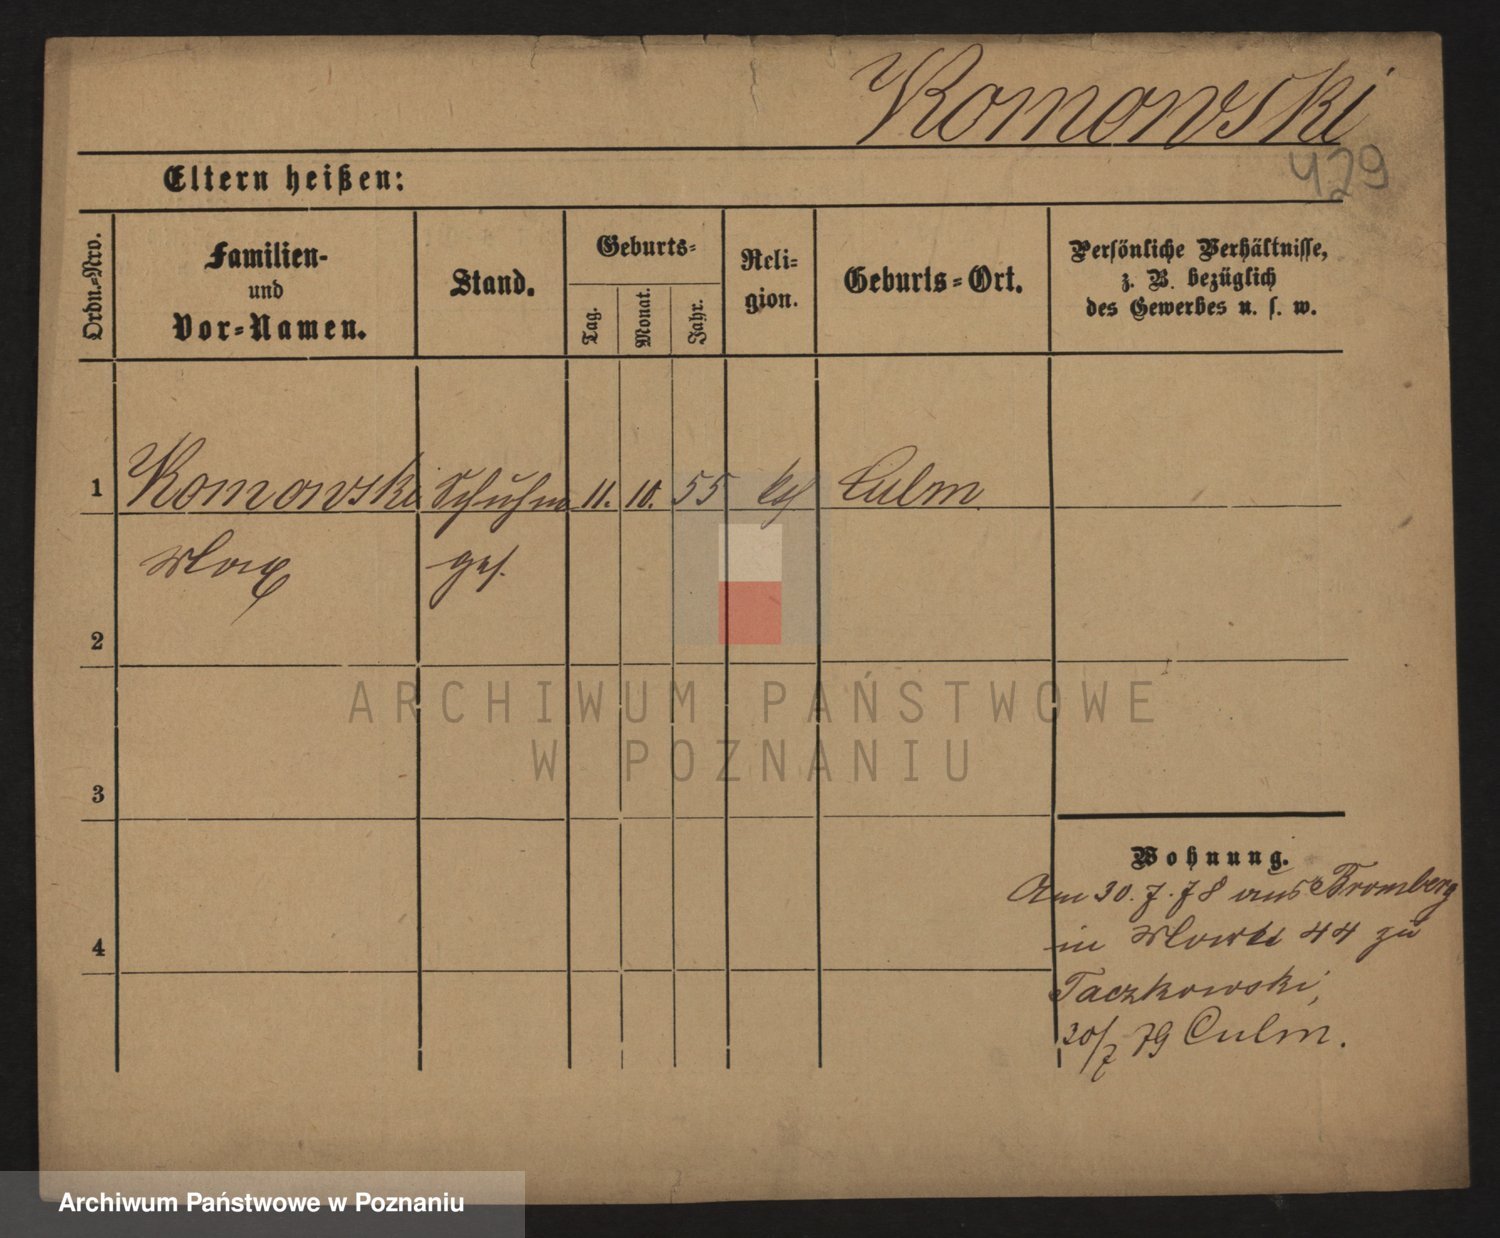 Komowski
429
Eltern heißen:
Ordn.-Nro.
Familien-
und
Vor-Namen.
Stand.
Geburts-
Tag.
Monat.
Jahr.
Reli-
gion.
Geburts-Ort.
Persönliche Verhältnisse,
z. B. bezüglich
des Gewerbes u. s. w.
1 Komowski Schuhm 11. 10. 55 ksl Culm
Max ges.
2
ARCHIWUM PAŃSTWOWE
W POZNANIU
3
Wohnung.
Am 30. 7. 78 aus Bromberg
4
in Markt 44 zu
Taczkowski,
30/7 79 Culm.
Archiwum Państwowe w Poznaniu